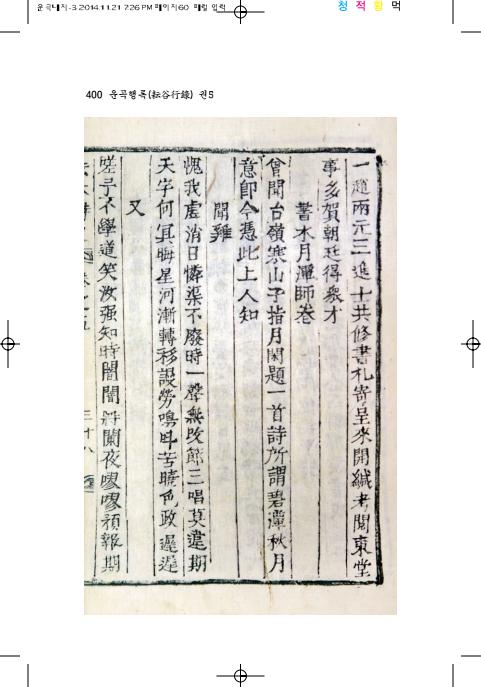 윤곡내지-3 2014.11.21 7:26 PM 페이지60 매킬 입력
청 적 황 먹
400 운곡행록(耘谷行錄) 권5
一趙兩元三進士共修書札寄呈來開緘考閱東堂
事多賀朝廷得衆才
書水月潭師卷
曾聞台嶺寒山子指月閑題一首詩所謂碧潭秋月
意即今憑此上人知
聞雞
愧我虛消日憐渠不廢時一聲無改節三唱莫違期
天字何其晦星河漸轉移設勞鳴叫苦曉色政遲遲
又
嗟予不學道笑汝强知時闇闇將闌夜嘐嘐預報期
三十八